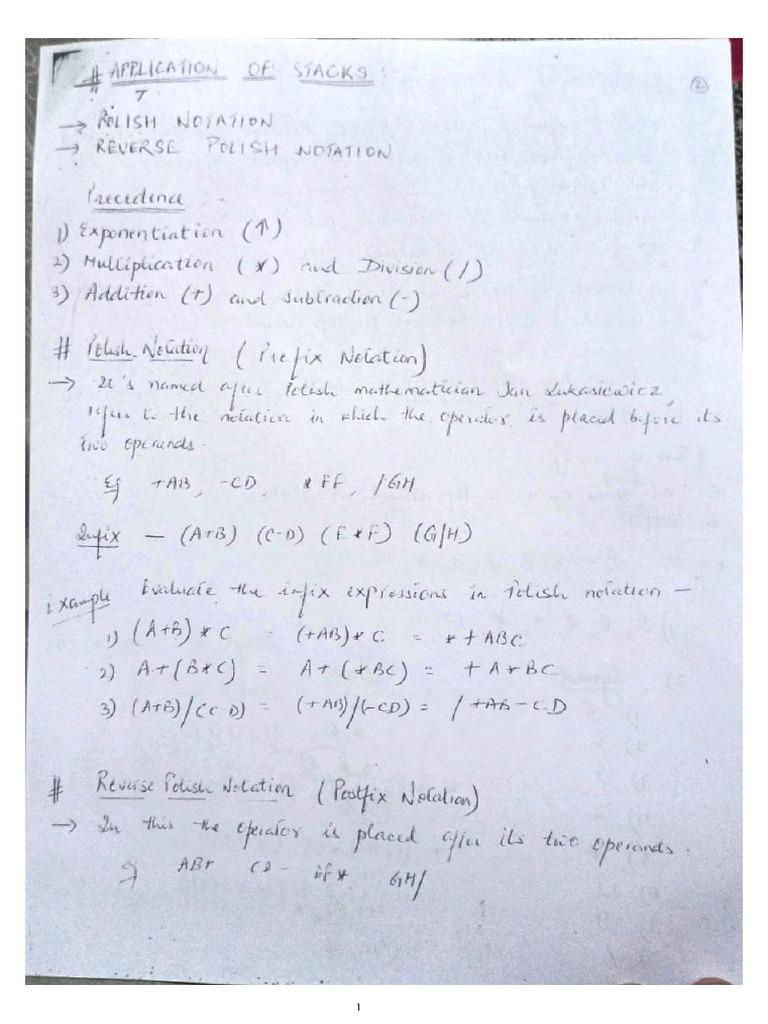 # APPLICATION OF STACKS :
②
→ POLISH NOTATION
→ REVERSE POLISH NOTATION
Precedence :-
1) Exponentiation (↑)
2) Multiplication (*) and Division (/)
3) Addition (+) and Subtraction (-)
# Polish Notation (Prefix Notation)
→ It's named after Polish mathematician Jan Lukasiewicz,
refers to the notation in which the operator is placed before its
two operands.
Eg +AB, -CD, *EF, /GH
Infix — (A+B) (C-D) (E*F) (G/H)
Example Evaluate the infix expressions in Polish notation —
1) (A+B)*C = (+AB)*C = *+ABC
2) A+(B*C) = A+(*BC) = +A*BC
3) (A+B)/(C-D) = (+AB)/(-CD) = /+AB-CD
# Reverse Polish Notation (Postfix Notation)
→ In this the operator is placed after its two operands.
eg AB+ CD- EF* GH/
1